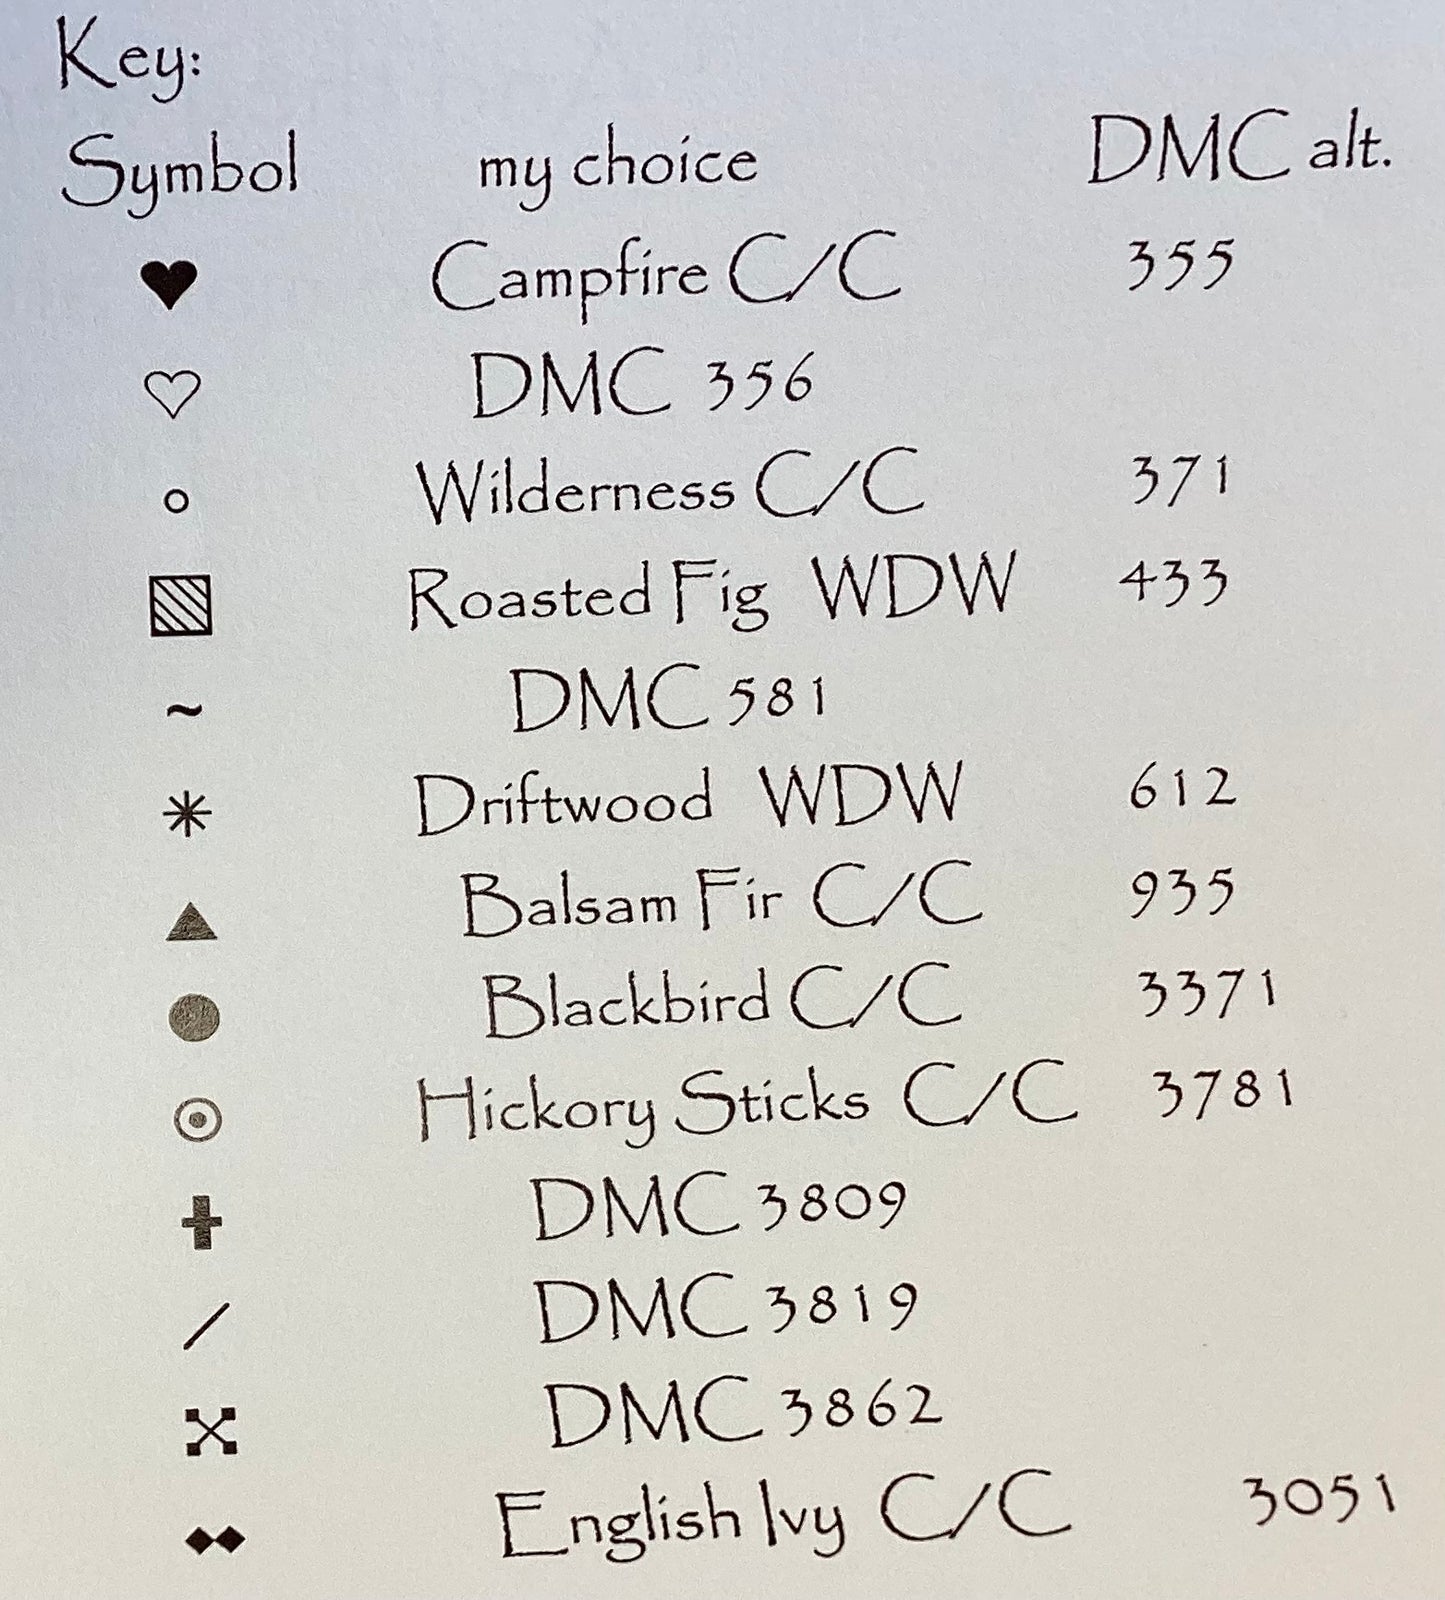 Key:
Symbol my choice DMC alt.
♥ Campfire C/C 355
♡ DMC 356
○ Wilderness C/C 371
▧ Roasted Fig WDW 433
~ DMC 581
✳ Driftwood WDW 612
▲ Balsam Fir C/C 935
● Blackbird C/C 3371
⊙ Hickory Sticks C/C 3781
✝ DMC 3809
/ DMC 3819
DMC 3862
◆◆ English Ivy C/C 3051